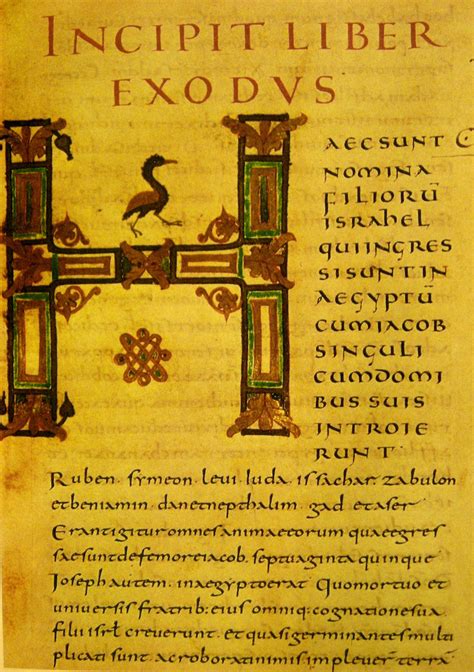 INCIPIT LIBER
EXODVS
H
AEC SUNT
NOMINA
FILIORŪ
ISRAHEL
QUI INGRES
SI SUNT IN
AEGYPTŪ
CUM IACOB
SINGULI
CUM DOMI
BUS SUIS
INTROIE
RUNT
Ruben. symeon. levi. Iuda. issachar. zabulon
et beniamin. dan et nepthalim. gad et aser
Erant igitur omnes animae eorum quae egres
sae sunt de femore iacob. septuaginta quinque
Ioseph autem. in aegypto erat. Quo mortuo et
universis fratrib. eius omniq. cognatione sua.
filii isrl creverunt. et quasi germinantes multi
plicati sunt. ac roborati nimis impleverˉ terrā